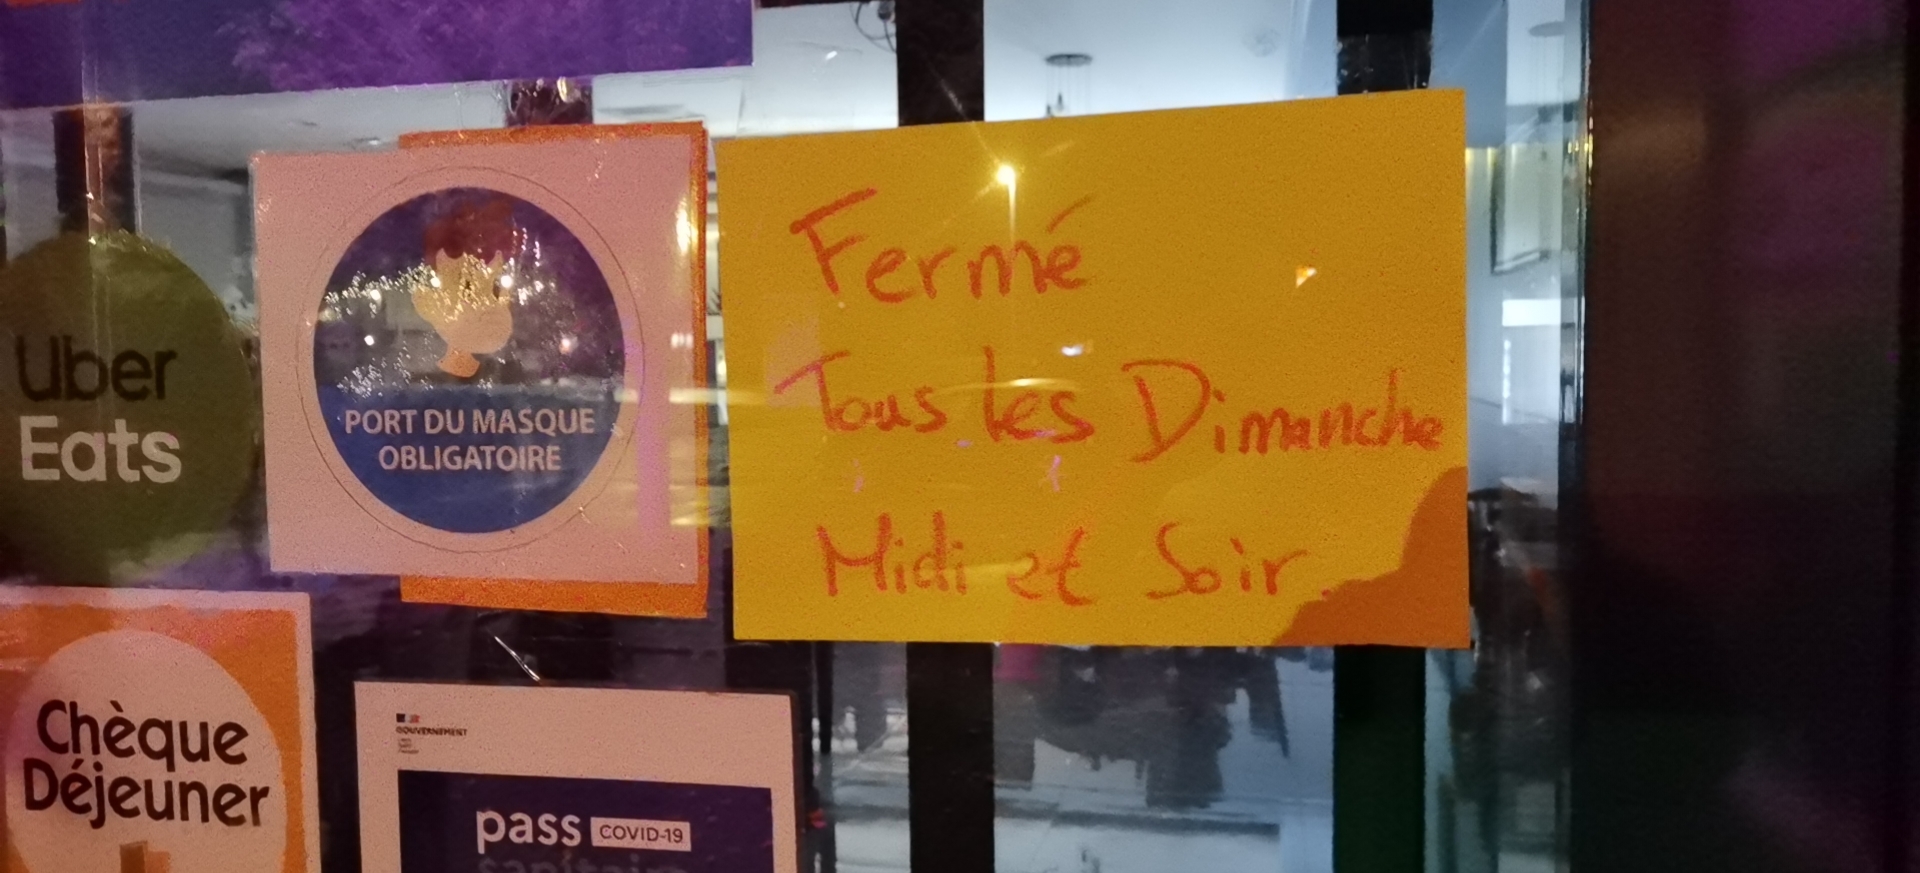 Uber
Eats
PORT DU MASQUE
OBLIGATOIRE
Fermé
Tous les Dimanche
Midi et Soir.
Chèque
Déjeuner
GOUVERNEMENT
pass COVID-19
sanitaire